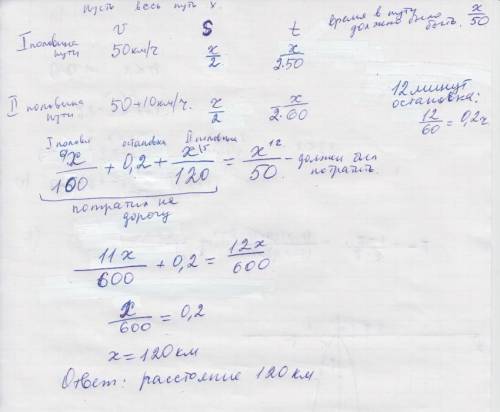 Пусть весь путь x.
v S t
время в пути должно было быть x/50
I половина пути 50 км/ч x/2 x/2·50
II половина пути 50+10 км/ч. x/2 x/2·60
12 минут остановка:
12/60 = 0,2ч
I полови остановка II половина
x/100 + 0,2 + x/120 = x/50 - должны был потратить
потратил на дорогу
11x/600 + 0,2 = 12x/600
x/600 = 0,2
x = 120 км
Ответ: расстояние 120 км